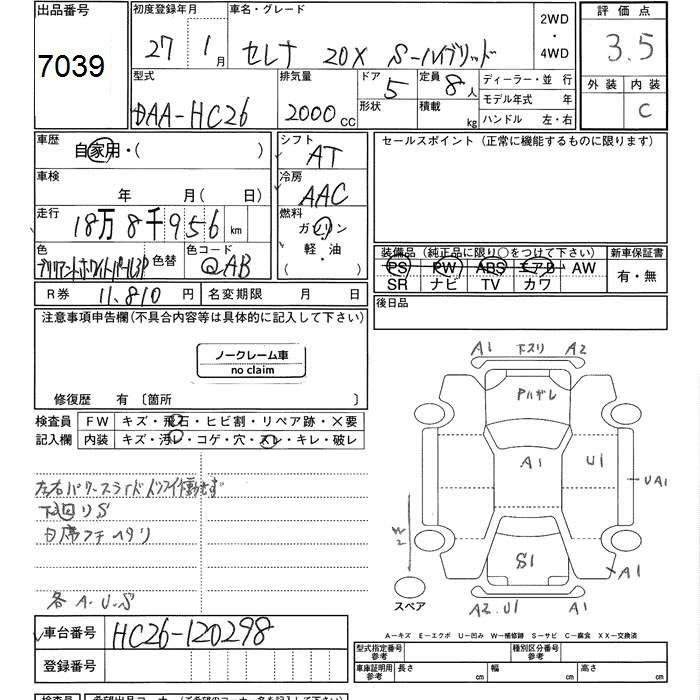 出品番号 初度登録年月 車名・グレード 2WD・4WD 評価点
7039 27年1月 セレナ 20X S-ハイブリッド 3.5
型式 排気量 ドア 定員 ディーラー・並行 外装 内装
DAA-HC26 2000cc 5 8人 モデル年式 年 C
形状 積載 kg ハンドル 左・右
車歴 自家用・( ) シフト AT セールスポイント(正常に機能するものに限ります)
車検 年 月(日) 冷房 AAC
走行 18万8千956km 燃料 ガソリン
軽・油
( )
色 ブリリアントホワイトパール3P 色替 色コード @AB
装備品(純正品に限り○をつけて下さい) 新車保証書
PS PW ABS エアB AW 有・無
SR ナビ TV カワ
R券 11,810円 名変期限 月 日 後日品
注意事項申告欄(不具合内容等は具体的に記入して下さい)
ノークレーム車
no claim
修復歴 有〔箇所 〕
検査員 FW キズ・飛石・ヒビ割・リペア跡・×要
記入欄 内装 キズ・汚レ・コゲ・穴・スレ・キレ・破レ
左右パワースライドドア作動せず
下廻リS
各A・U・S
A1 下スリ A2
Pハガレ
A1 U1
UA1
S1 A1
A2.U1 A1
スペア
A-キズ E-エクボ U-凹み W-補修跡 S-サビ C-腐食 XX-交換済
車台番号 HC26-120298
登録番号
型式指定番号 参考 種別区分番号 参考
車庫証明用 参考 長さ cm 幅 cm 高さ cm
検査員 希望出品コーナー(ご希望のコーナー名を記入下さい)